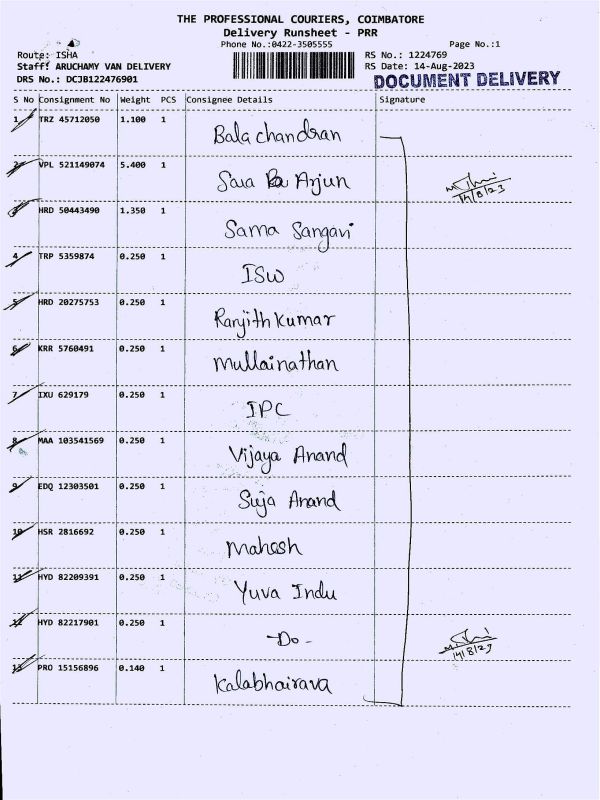 THE PROFESSIONAL COURIERS, COIMBATORE
Delivery Runsheet - PRR
Phone No.:0422-3505555 Page No.:1
Route: ISHA RS No.: 1224769
Staff: ARUCHAMY VAN DELIVERY RS Date: 14-Aug-2023
DRS No.: DCJB122476901 DOCUMENT DELIVERY
S No Consignment No Weight PCS Consignee Details Signature
1 TRZ 45712050 1.100 1 Bala chandran
2 VPL 521149074 5.400 1 Sara Arjun 14/8/23
3 HRD 50443490 1.350 1 Sama Sangavi
4 TRP 5359874 0.250 1 ISW
5 HRD 20275753 0.250 1 Ranjith kumar
6 KRR 5760491 0.250 1 Mullainathan
7 IXU 629179 0.250 1 IPC
8 MAA 103541569 0.250 1 Vijaya Anand
9 EDQ 12303501 0.250 1 Suja Anand
10 HSR 2816692 0.250 1 Mahesh
11 HYD 82209391 0.250 1 Yuva Indu
12 HYD 82217901 0.250 1 -Do- 14/8/23
13 PRO 15156896 0.140 1 Kalabhairava